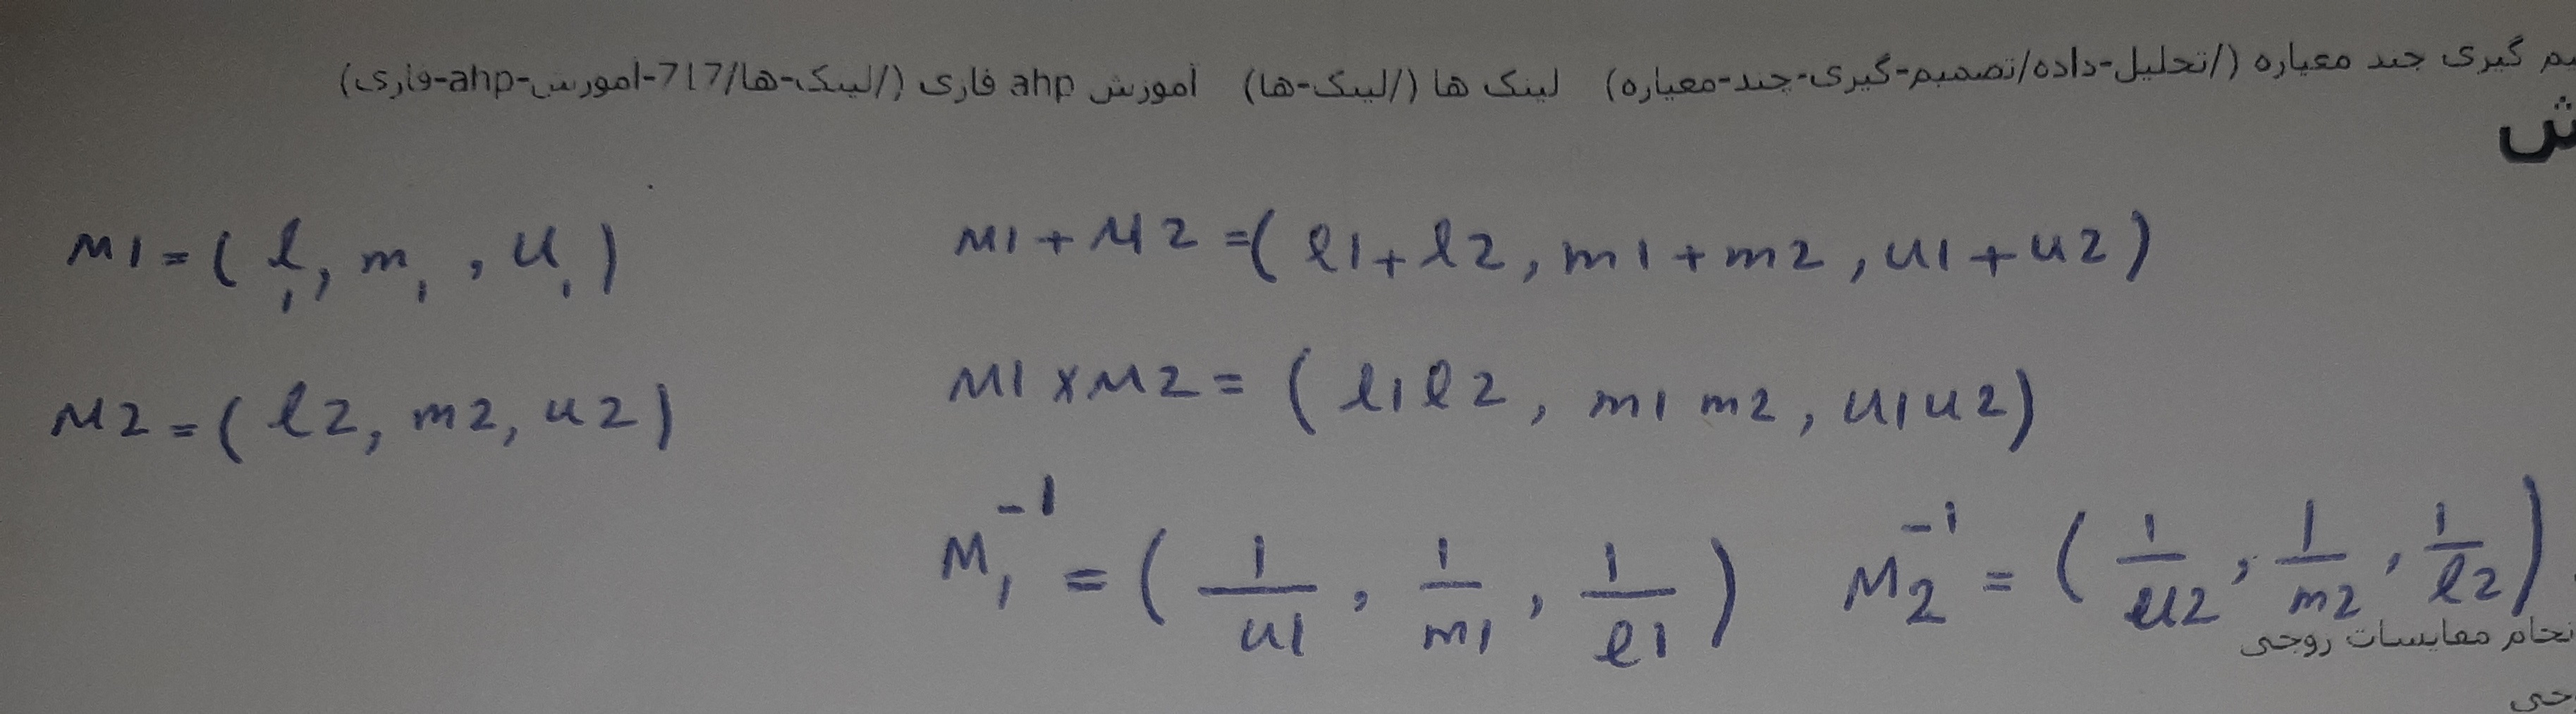 م گیری چند معیاره (/تحلیل-داده/تصمیم-گیری-چند-معیاره) لینک ها (/لینک-ها) آموزش ahp فازی (/لینک-ها/717-آموزش-ahp-فازی)
M1 = (l1, m1, u1)
M1 + M2 = (l1 + l2, m1 + m2, u1 + u2)
M2 = (l2, m2, u2)
M1 × M2 = (l1 l2, m1 m2, u1 u2)
M1⁻¹ = (1/u1, 1/m1, 1/l1) M2⁻¹ = (1/u2, 1/m2, 1/l2)
نجام مقایسات زوجی